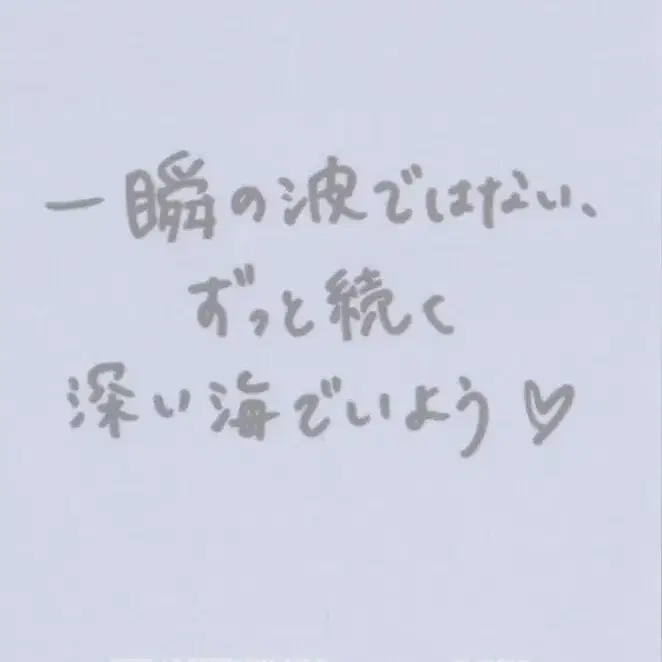 一瞬の波ではない、
ずっと続く
深い海でいよう♡